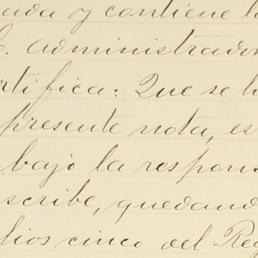 uada y contiene la
C. administrador
ertifica: Que se h
presente nota, es
bajo la respons
scribe, quedand
lios cinco del Reg